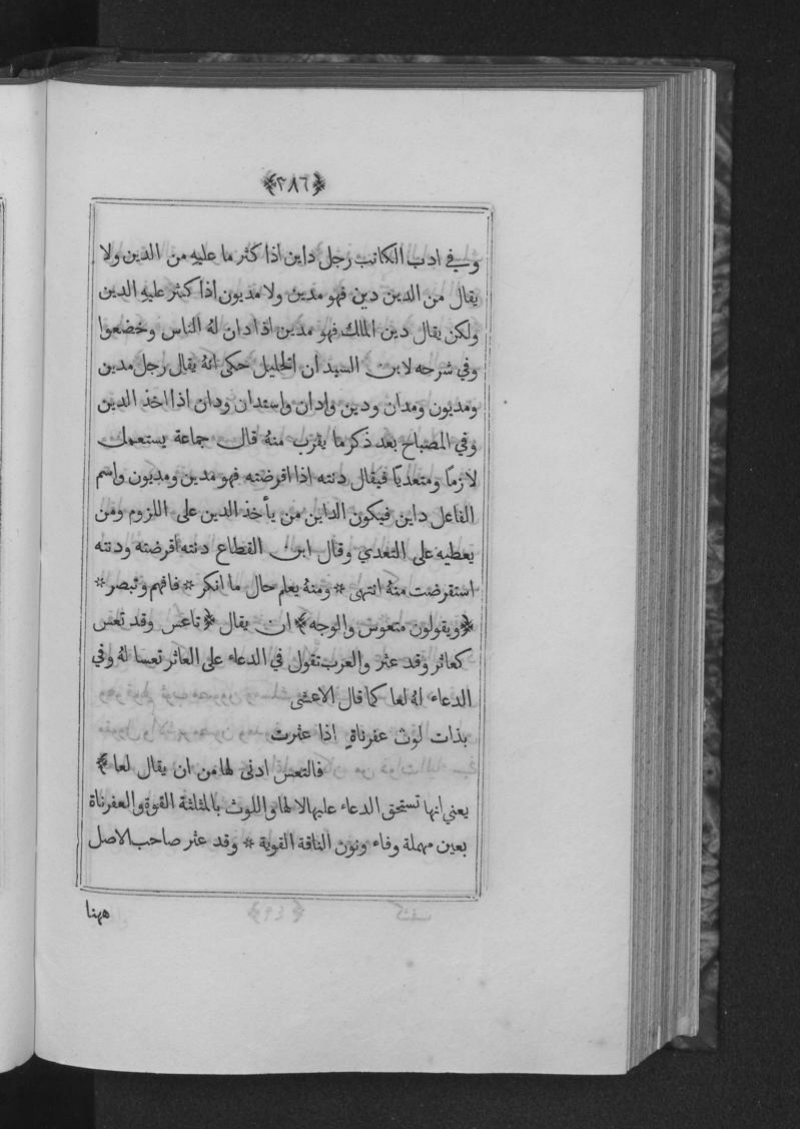 ﴿٢٨٦﴾
وفي ادب الكاتب رجل داين اذا كثر ما عليه من الدين ولا
يقال من الدين دين فهو مدين ولا مديون اذا كثر عليه الدين
ولكن يقال دين الملك فهو مدين اذا دان لهُ الناس وخضعوا
وفي شرحه لابن السيد ان الخليل حكى انهُ يقال رجل مدين
ومديون ومدان ودين وادان واستدان ودان اذا اخذ الدين
وفي المصباح بعد ذكر ما يقرب منهُ قال جماعة يستعمل
لازمًا ومتعديًا فيقال دنته اذا اقرضته فهو مدين ومديون واسم
الفاعل داين فيكون الداين من يأخذ الدين على اللزوم ومن
يعطيه على التعدي وقال ابن القطاع دنته اقرضته ودنته
استقرضت منهُ انتهى * ومنهُ يعلم حال ما انكر * فافهم وتبصر *
﴿ويقولون متعوس والوجه﴾ ان يقال ﴿تاعس وقد تعس
كعاثر وقد عثر والعرب تقول في الدعاء على العاثر تعسا لهُ وفي
الدعاء لهُ لعا كما قال الاعشى
بذات لوث عفرناةٍ اذا عثرت
فالتعس ادنى لها من ان يقال لعا﴾
يعني انها تستحق الدعاء عليها لا لها واللوث بالمثلثة القوة والعفرناة
بعين مهملة وفاء ونون الناقة القوية * وقد عثر صاحب الاصل
ههنا